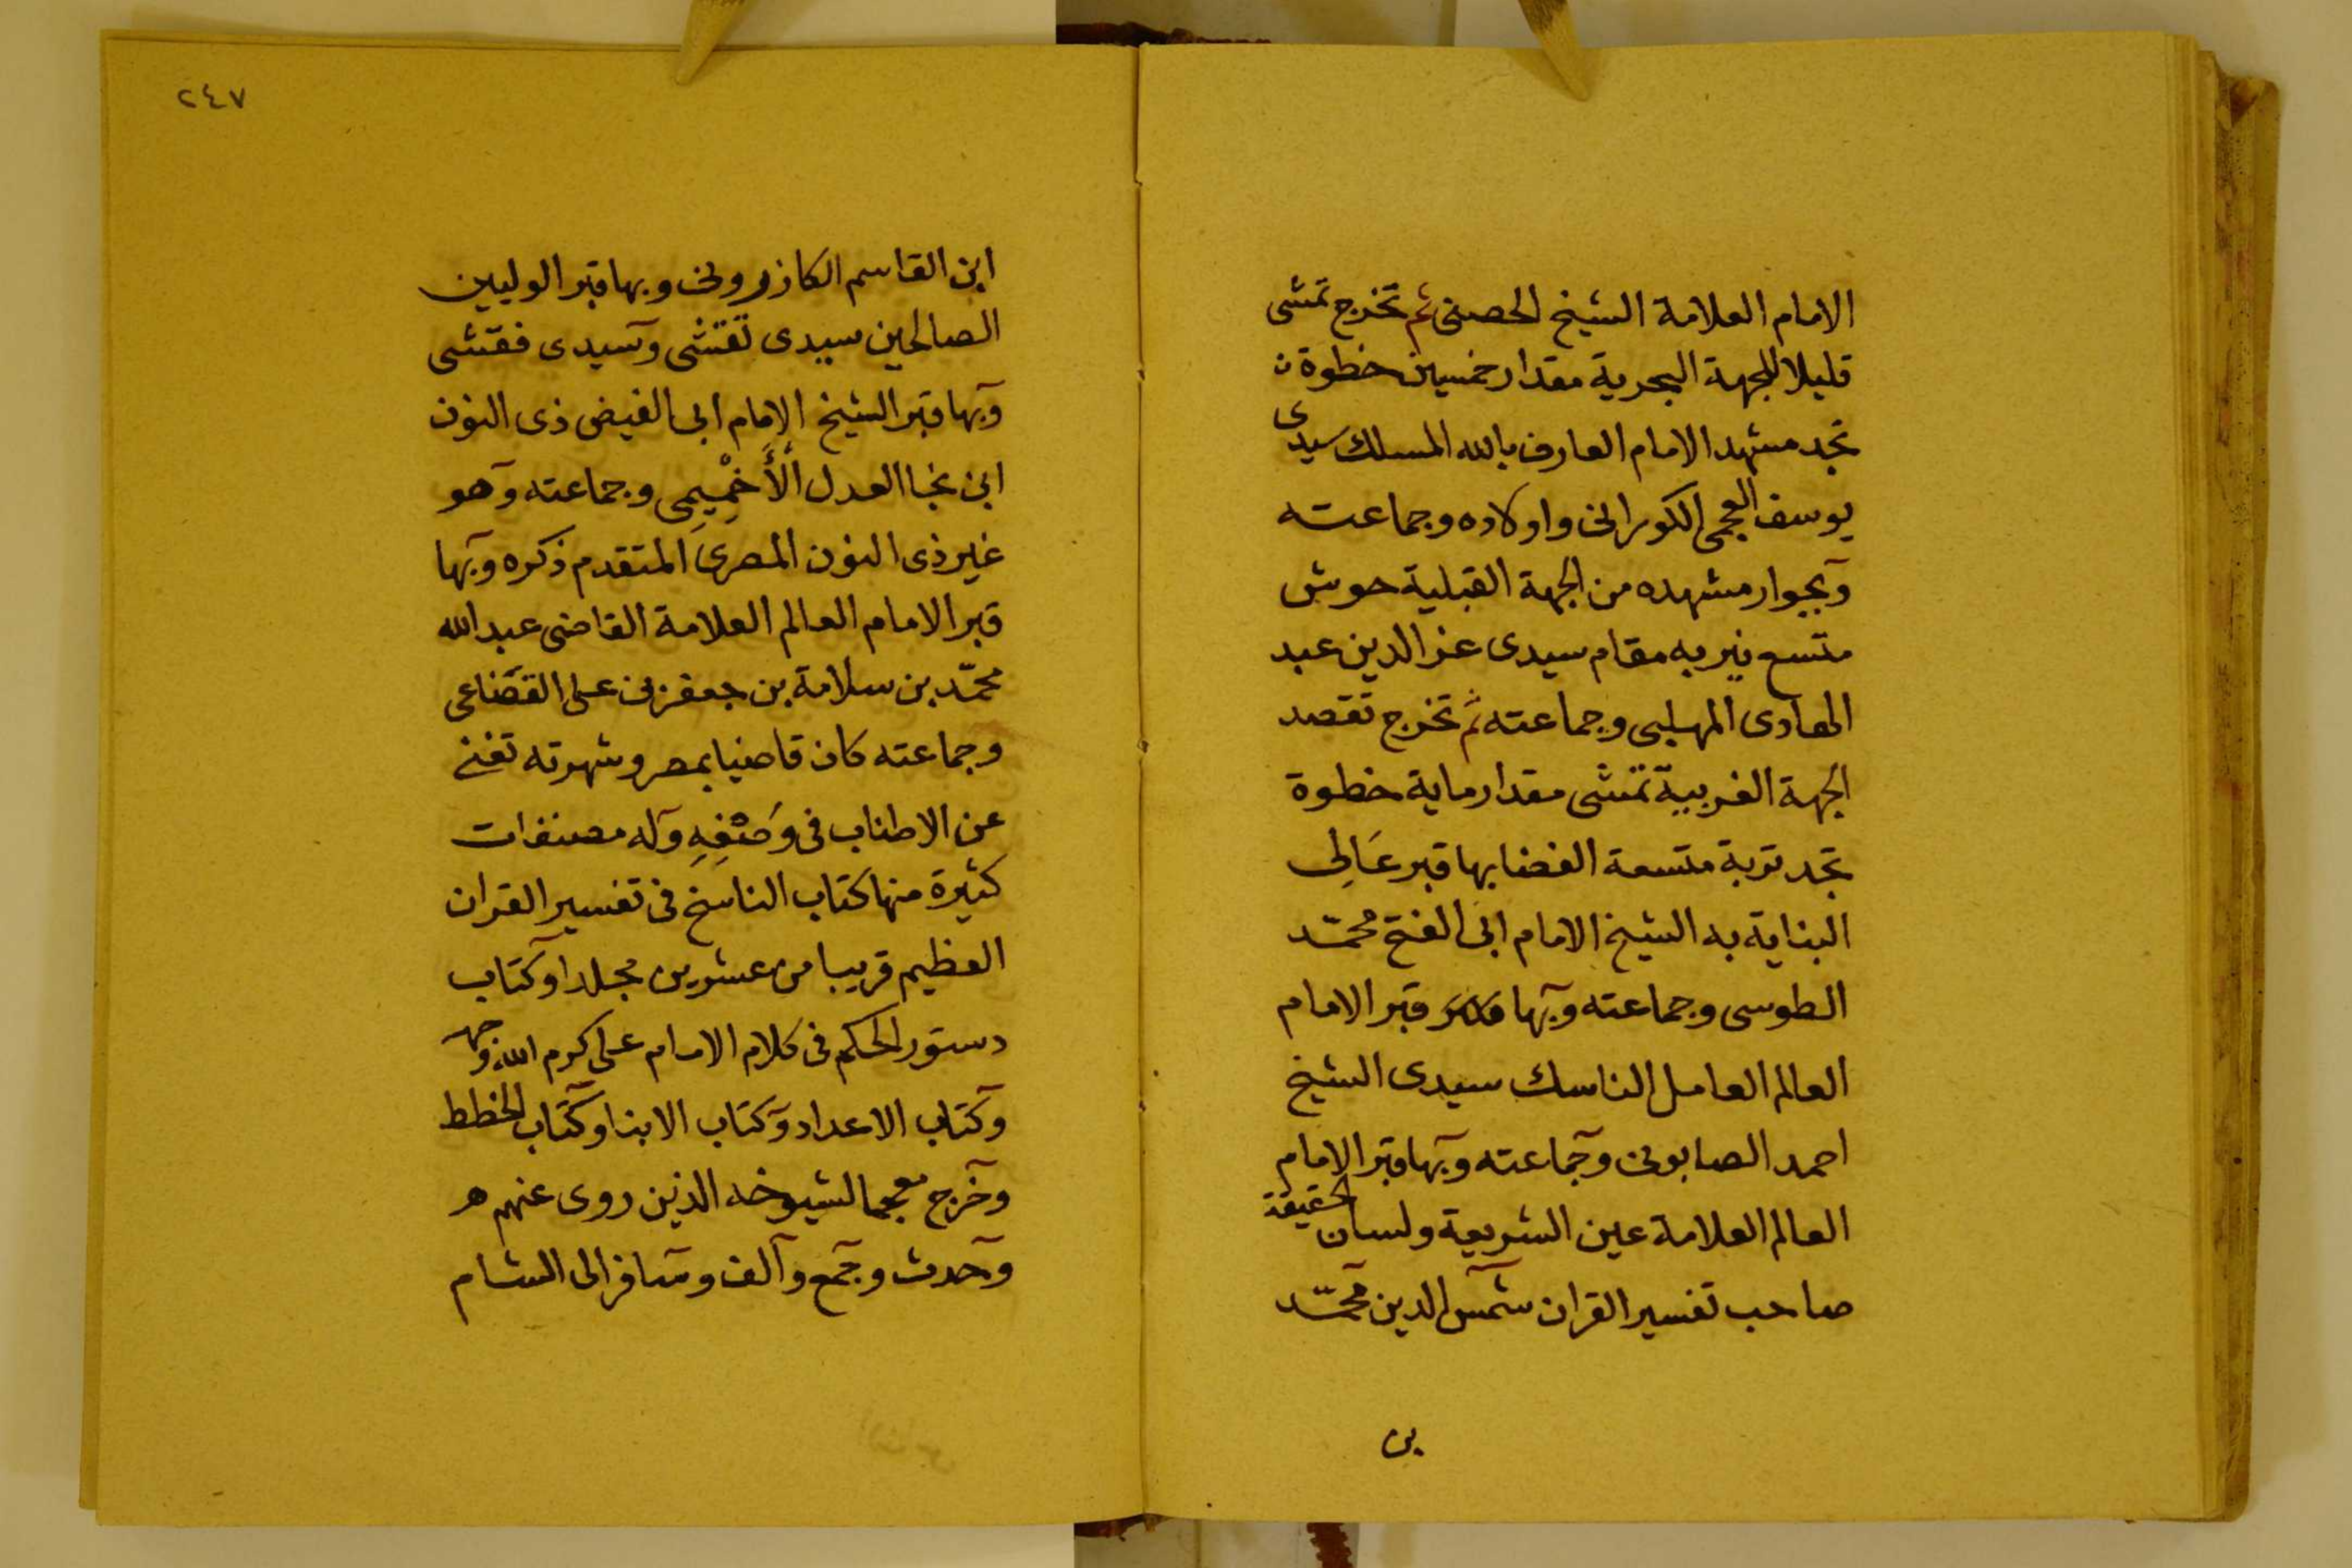 الامام العلامة الشيخ الحصنى ثم تخرج تمشى
قليلا للجهة البحرية مقدار خمسين خطوة
تجد مشهد الامام العارف بالله المسلك سيدى
يوسف العجمى الكورانى واولاده وجماعته
وبجوار مشهده من الجهة القبلية حوش
متسع نير به مقام سيدى عز الدين عبد
الهادى المهلبى وجماعته ثم تخرج تقصد
الجهة الغربية تمشى مقدار ماية خطوة
تجد تربة متسعة الفضا بها قبر عَالِى
البناية به الشيخ الامام ابى الفتح محمّد
الطوسى وجماعته وبها قبر الامام
العالم العامل الناسك سيدى الشيخ
احمد الصابونى وجماعته وبها قبر الامام
العالم العلامة عين الشريعة ولسان الحقيقة
صاحب تفسير القران شمس الدين محمّد
بن
٢٤٧
ابن القاسم الكازرونى وبها قبر الوليين
الصالحين سيدى تقشى وسيدى فقشى
وبها قبر الشيخ الامام ابى الفيض ذى النون
ابن نجا العدل الْأَخْمِيمِى وجماعته وهو
غير ذى النون المصرى المتقدم ذكره وبها
قبر الامام العالم العلامة القاضى عبد الله
محمّد بن سلامة بن جعفر بن على القضاعى
وجماعته كان قاضيا بمصر وشهرته تغنى
عن الاطناب فى وَصْفِهِ وله مصنفات
كثيرة منها كتاب الناسخ فى تفسير القران
العظيم قريبا من عشرين مجلدا وكتاب
دستور الحكم فى كلام الامام على كرم الله وجهه
وكتاب الاعداد وكتاب الابنا وكتاب الخطط
وخرج معجما لشيوخه الذين روى عنهم
وحدث وجمع وآلف وسافر الى الشام